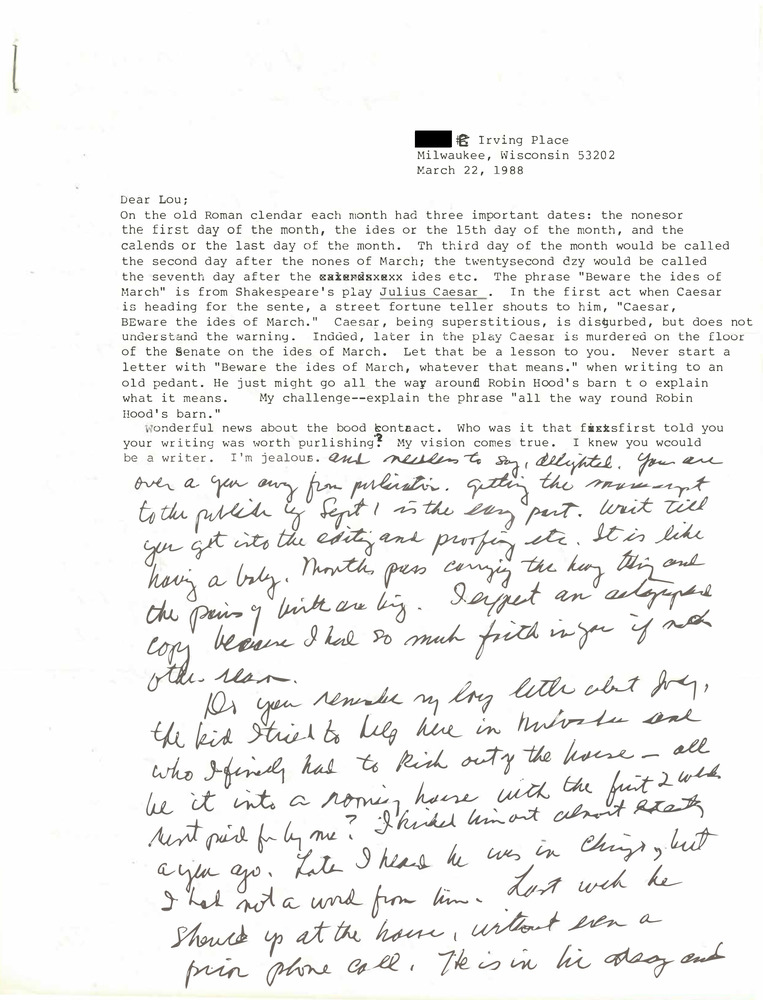 E Irving Place
Milwaukee, Wisconsin 53202
March 22, 1988
Dear Lou;
On the old Roman clendar each month had three important dates: the nonesor
the first day of the month, the ides or the 15th day of the month, and the
calends or the last day of the month. Th third day of the month would be called
the second day after the nones of March; the twentysecond dzy would be called
the seventh day after the ides etc. The phrase "Beware the ides of
March" is from Shakespeare's play Julius Caesar . In the first act when Caesar
is heading for the sente, a street fortune teller shouts to him, "Caesar,
BEware the ides of March." Caesar, being superstitious, is disturbed, but does not
understand the warning. Indded, later in the play Caesar is murdered on the floor
of the Senate on the ides of March. Let that be a lesson to you. Never start a
letter with "Beware the ides of March, whatever that means." when writing to an
old pedant. He just might go all the way around Robin Hood's barn t o explain
what it means. My challenge--explain the phrase "all the way round Robin
Hood's barn."
Wonderful news about the bood contract. Who was it that first told you
your writing was worth purlishing? My vision comes true. I knew you wcould
be a writer. I'm jealous. and needless to say, delighted. You are
over a year away from publication. Getting the manuscript
to the publish by Sept 1 is the easy part. Wait till
you get into the editing and proofing etc. It is like
having a baby. Months pass carrying the heavy thing and
the pains of birth are big. I expect an autographed
copy because I had so much faith in you if no
other reason.
Do you remember my long letter about Jody,
the kid I tried to help here in Milwaukee and
who I finally had to kick out of the house — all
be it into a rooming house with the first 2 weeks
rent paid for by me? I kicked him out almost exactly
a year ago. Later I heard he was in Chicago, but
I had not a word from him. Last week he
showed up at the house, without even a
prior phone call. He is in his and